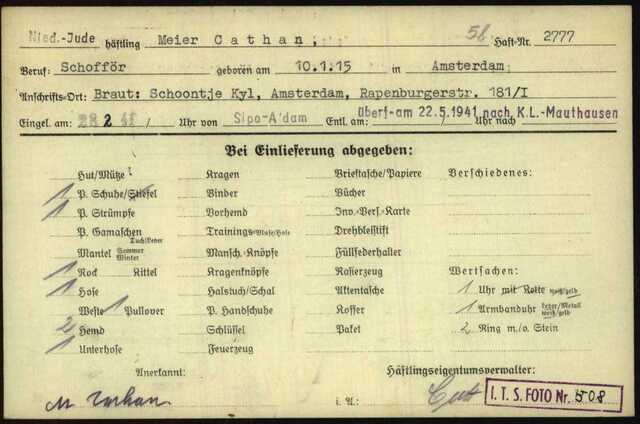 Nied.-Jude häftling Meier Cathan, 56 Haft-Nr. 2777
Beruf: Schofför geboren am 10.1.15 in Amsterdam
Anschrifts-Ort: Braut: Schoontje Kyl, Amsterdam, Rapenburgerstr. 181/I
Eingel. am: 28 2 41 / Uhr von Sipo-A'dam Entl. am: / Uhr nach
überf. am 22.5.1941 nach K.L.-Mauthausen
Bei Einlieferung abgegeben:
Hut/Mütze Kragen Brieftasche/Papiere Verschiedenes:
1 P. Schuhe/Stiefel Binder Bücher
1 P. Strümpfe Vorhemd Inv.-Vers.-Karte
P. Gamaschen Tuch/Leder Trainings-Bluse/Hose Drehbleistift
Mantel Sommer Winter Mansch.-Knöpfe Füllfederhalter
1 Rock Kittel Kragenknöpfe Rasierzeug Wertsachen:
1 Hose Halstuch/Schal Aktentasche 1 Uhr mit Kette weiß/gelb
Weste 1 Pullover P. Handschuhe Koffer 1 Armbanduhr Leder/Metall weiß/gelb
2 Hemd Schlüssel Paket 2 Ring m./o. Stein
1 Unterhose Feuerzeug
Anerkannt: Häftlingseigentumsverwalter:
i. A.:
I. T. S. FOTO Nr. 508